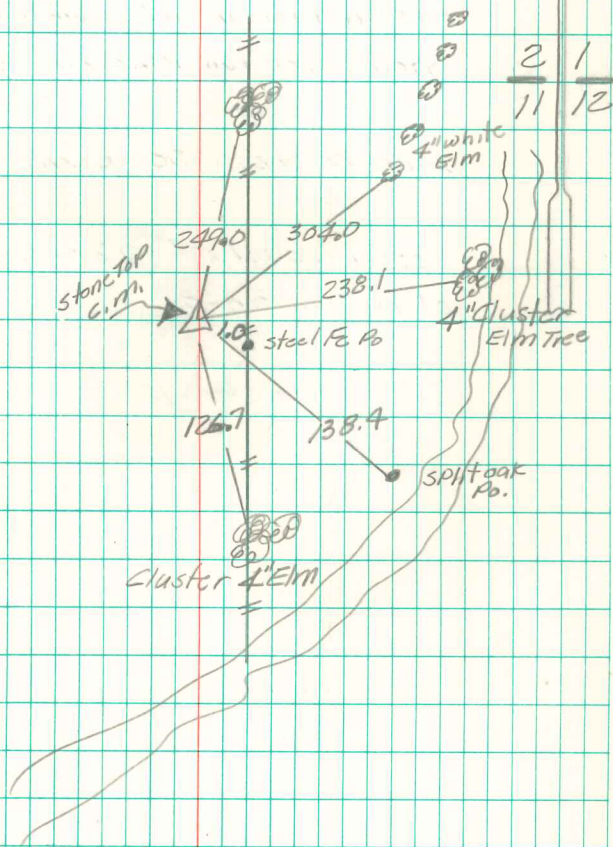 2 | 1
11 | 12
4" white
Elm
249.0
304.0
stone TOP
C.M.
238.1
4" Cluster
Elm Tree
1.0
steel Fe Po
126.7
138.4
split oak
Po.
Cluster 4" Elm